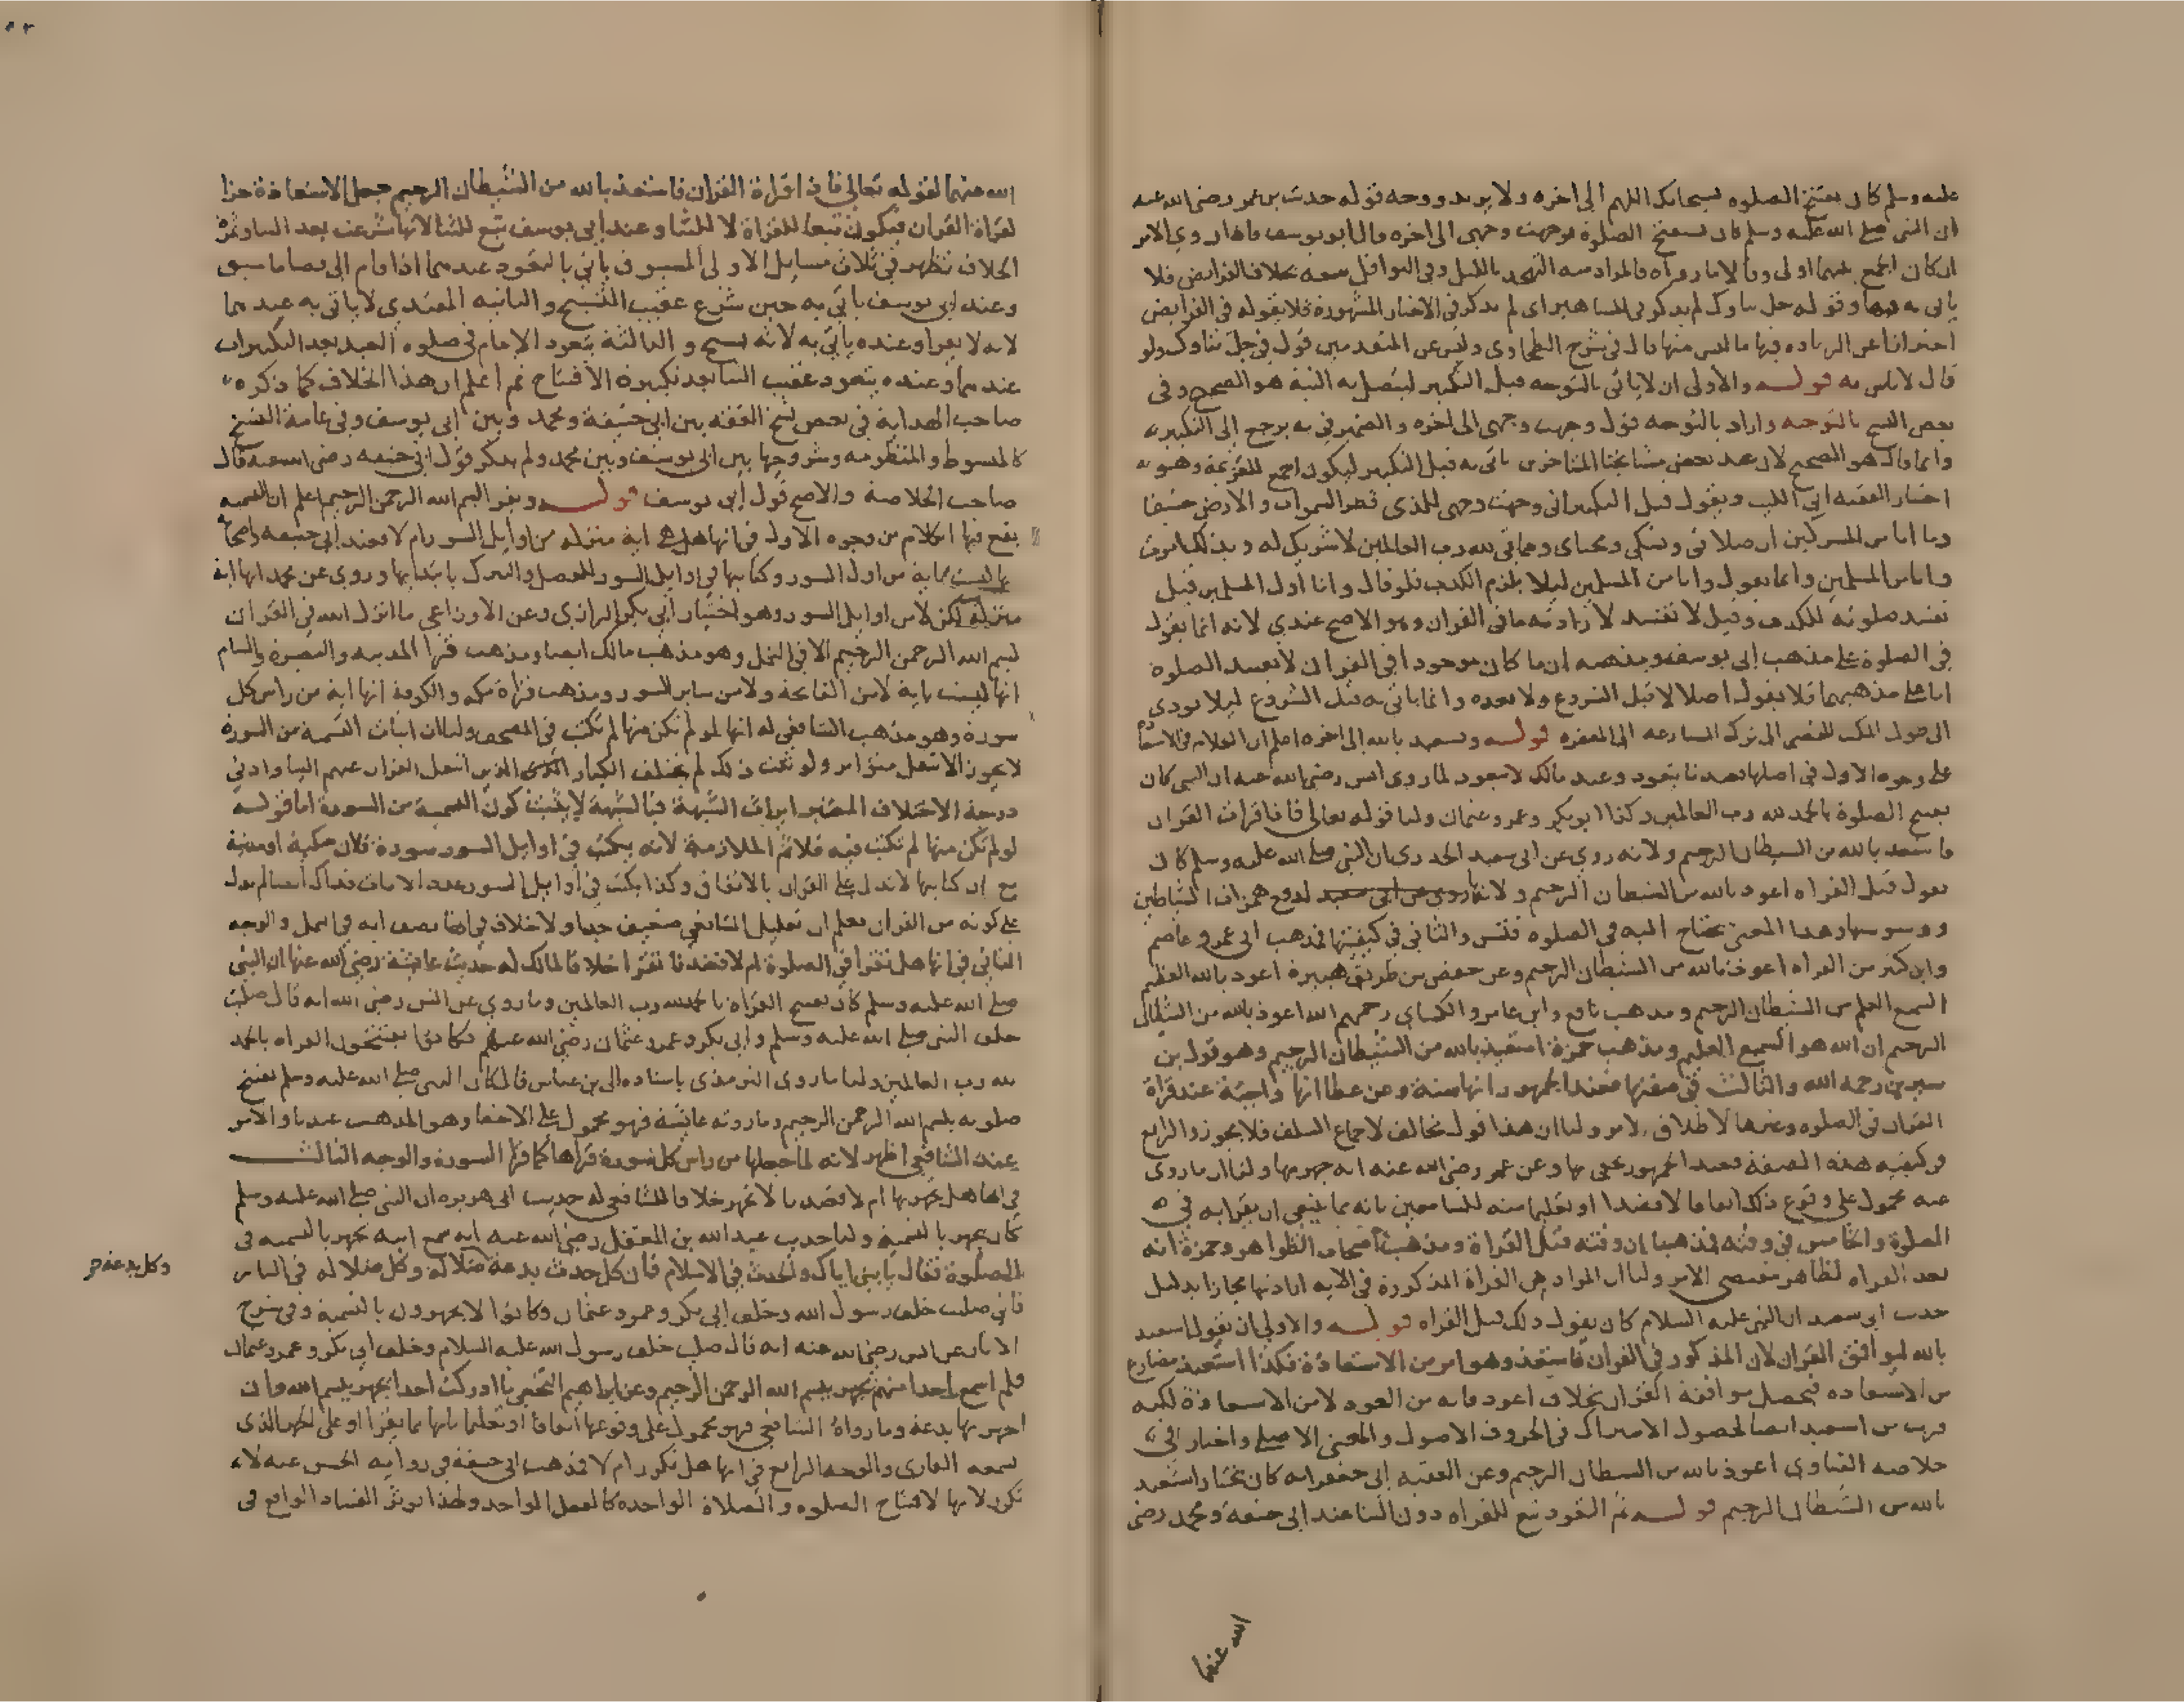 عليه وسلم كان يفتتح الصلوة بسبحانك اللهم الى اخره ولا يزيد ووجه قوله حديث بن عمر رضى الله عنه
ان النبى صلى الله عليه وسلم كان يستفتح الصلوة بوجهت وجهى الى اخره وقال ابو يوسف فاذا روي الامر
ان كان الجمع بينهما اولى وقالا ما رواه فالمراد منه التهجد بالليل وفى النوافل سعه بخلاف الفرايض فلا
ياتى به فيها وقوله جل ثناوك لم يذكر فى المشاهير اى لم يذكر فى الاخبار المشهورة فلا يقوله فى الفرايض
احترازا عن الزياده فيها ما ليس منها قال فى شرح الطحاوى وليس عن المتقدمين قول فى جل ثناوك ولو
قال لا باس به قوله والأولى ان لا ياتى بالتوجه قبل التكبير ليتصل به النية هو الصحيح وفى
بعض النسخ بالتوجه واراد بالتوجه قول وجهت وجهى الى اخره والضمير فى به يرجع الى التكبير
وانما قال هو الصحيح لان عند بعض مشايخنا المتاخرين ياتى به قبل التكبير ليكون اجمع للعزيمة وهو
اختيار الفقيه ابى الليث ويقول قبل التكبير انى وجهت وجهى للذى فطر السموات والارض حنيفا
وما انا من المشركين ان صلاتى ونسكى ومحياى ومماتى لله رب العالمين لا شريك له وبذلك امرت
وانا من المسلمين وانما يقول وانا من المسلمين ليلا يلزم الكذب فلو قال وانا أول المسلمين قيل
تفسد صلوته للكذب وقيل لا تفسد لارادته ما فى القران وهو الاصح عندي لانه انما يقول
فى الصلوة على مذهب ابى يوسف ومذهبه ان ما كان موجودا فى القران لا يفسد الصلوة
اما على مذهبهما فلا يقول اصلا لا قبل الشروع ولا بعده وانما ياتى به قبل الشروع ليلا يودى
الى طول المكث المفضى الى ترك المسارعه الى المغفره قوله ويستعيذ بالله الى اخره اعلم ان الكلام فى الاستعاذة
على وجوه الاول فى اصلها فعندنا يتعوذ وعند مالك لا يتعوذ لما روى انس رضى الله عنه ان النبى كان
يفتتح الصلوة بالحمد لله رب العالمين وكذا ابو بكر وعمر وعثمان ولنا قوله تعالى فاذا قرات القران
فاستعذ بالله من الشيطان الرجيم ولانه روي عن ابى سعيد الخدري ان النبى صلى الله عليه وسلم كان
يقول قبل القراه اعوذ بالله من الشيطان الرجيم ولانها لدفع همزات الشياطين
ووسوستها وهذا المعنى يحتاج اليه فى الصلوه فتسن والثانى فى كيفيتها فمذهب ابى عمرو وعاصم
وابن كثير من القراه اعوذ بالله من الشيطان الرجيم وعن حفص من طريق هبيرة اعوذ بالله العظيم
السميع العليم من الشيطان الرجيم ومذهب نافع وابن عامر والكساى رحمهم الله اعوذ بالله من الشيطان
الرجيم ان الله هو السميع العليم ومذهب حمزة استعيذ بالله من الشيطان الرجيم وهو قول بن
سيرين رحمه الله والثالث فى صفتها فعند الجمهور انها سنة وعن عطا انها واجبة عند قراة
القران فى الصلوه وغيرها لاطلاق الامر ولنا ان هذا قول مخالف لاجماع السلف فلا يجوز والرابع
فى كيفيه هذه الصفة فعند الجمهور يخفى بها وعن عمر رضى الله عنه انه جهر بها ولنا ان ما روى
عنه محمول على وقوع ذلك اتفاقا لا قصدا او تعليما منه للسامعين بانه مما ينبغى ان يقرا به فى
الصلوة والخامس فى وقته فمذهبنا ان وقته قبل القراة ومذهب اصحاب الظواهر وحمزة انه
بعد القراه لظاهر مقتضى الامر ولنا ان المراد هى القراة المذكورة فى الايه ارادتها مجازا بدليل
حديث ابى سعيد ان النبى عليه السلام كان يقول ذلك قبل القراه قوله والاولى ان يقول استعيذ
بالله ليوافق القران لان المذكور فى القران فاستعذ وهو امر من الاستعاذة فكذا استعيذ مضارع
من الاستعاذه فتحصل موافقة القران بخلاف اعوذ فانه من العوذ لا من الاستعاذة لكنه
قريب من استعيذ ايضا لحصول الاشتراك فى الحروف الاصول والمعنى الاصلي واختار فى
خلاصه الفتاوى اعوذ بالله من الشيطان الرجيم وعن الفقيه ابى جعفر انه كان يختار استعيذ
بالله من الشيطان الرجيم قوله ثم التعوذ تبع للقراه دون الثنا عند ابى حنيفة ومحمد رضى
الله عنهما
الله عنهما لقوله تعالى فاذا قراة القران فاستعذ بالله من الشيطان الرجيم جعل الاستعاذة جزا
لقراة القران فيكون تبعا للقراة لا للثنا وعند ابى يوسف تبع للثنا لانها شرعت بعد الثنا وثمرة
الخلاف تظهر فى ثلاث مسايل الاولى المسبوق ياتى بالتعوذ عندهما اذا قام الى قضا ما سبق
وعند ابى يوسف ياتى به حين شرع عقيب التسبيح والثانيه المقتدي لا ياتى به عندهما
لانه لا يقرا وعنده ياتى به لانه يسبح والثالثة يتعوذ الإمام فى صلوه العيد بعد التكبيرات
عندهما وعنده يتعوذ عقيب الثنا بعد تكبيرة الافتتاح ثم اعلم ان هذا الخلاف كما ذكره
صاحب الهداية فى بعض نسخ الفقه بين ابى حنيفة ومحمد وبين ابى يوسف وفى عامة النسخ
كالمبسوط والمنظومه وشروحها بين ابى يوسف وبين محمد ولم يذكر قول ابى حنيفه رضى الله عنه قال
صاحب الخلاصة والاصح قول ابى يوسف قوله ويقرا بسم الله الرحمن الرحيم اعلم ان التسميه
يقع فيها الكلام من وجوه الاول فى انها هل هى اية منزله من اوايل السور ام لا فعند ابى حنيفه واصحابه
ليست باية من اول السور وكتابتها فى اوايل السور للفصل والتبرك بابتدا بها وروي عن محمد انها اية
منزلة لكن لا من اوايل السور وهو اختيار ابى بكر الرازي وعن الاوزاعى ما انزل الله فى القران
بسم الله الرحمن الرحيم الا فى النمل وهو مذهب مالك ايضا ومذهب قرا المدينه والبصرة والشام
انها ليست باية لا من الفاتحة ولا من ساير السور ومذهب قراة مكه والكوفة انها اية من راس كل
سورة وهو مذهب الشافعى له انها لو لم تكن منها لم تكتب فى المصحف ولنا ان اثبات التسمية من السورة
لا يجوز الا بنقل متواتر ولو ثبت ذلك لم يختلف الكبار الذين انتقل القران عنهم الينا وادنى
درجة الاختلاف المعتبر ايراث الشبهة فبالشبهة لا يثبت كون التسمية من السورة اما قوله
لو لم تكن منها لم تكتب فيه قلا ثم الملازمة لانه يكتب فى اوايل السور سورة فلان مكية او مدنية
مع ان كتابتها لا تدل على القران بالاتفاق وكذا يكتب فى أوايل السور عدد الايات فذاك ايضا لم يدل
على كونه من القران فعلم ان تعليل الشافعى ضعيف جدا ولا خلاف فى انها بعض ايه فى النمل والوجه
الثانى فى انها هل تقرا فى الصلوة ام لا فعندنا تقرا خلافا لمالك له حديث عايشة رضى الله عنها ان النبى
صلى الله عليه وسلم كان يفتتح القراة بالحمد لله رب العالمين وما روي عن انس رضى الله انه قال صليت
خلف النبى صلى الله عليه وسلم وابى بكر وعمر وعثمان رضى الله عنهم فكانوا يفتتحون القراه بالحمد
لله رب العالمين ولنا ما روى الترمذى باسناده الى بن عباس قال كان النبى صلى الله عليه وسلم يفتتح
صلوته ببسم الله الرحمن الرحيم وما روته عايشة فهو محمول على الاخفا وهو المذهب عندنا والامر
عند الشافعى اظهر لانه لما جعلها من راس كل سورة قراها كما قرا السورة والوجه الثالث
فى انها هل يجهر بها ام لا فعندنا لا تجهر خلافا للشافعى له حديث ابى هريره ان النبى صلى الله عليه وسلم
كان يجهر بالتسمية ولنا حديث عبد الله بن المغفل رضى الله عنه انه سمع ابنه يجهر بالتسميه فى
الصلوة فقال يا بنى اياك والحدث فى الاسلام فان كل حدث بدعة ضلالة وكل ضلاله فى النار
وكل بدعة
فانى صليت خلف رسول الله وخلف ابى بكر وعمر وعثمان وكانوا لا يجهرون بالتسمية وفى شرح
الاثار عن انس رضى الله عنه انه قال صليت خلف رسول الله عليه السلام وخلف ابى بكر وعمر وعثمان
فلم اسمع احدا منهم يجهر ببسم الله الرحمن الرحيم وعن ابراهيم النخعى ما ادركت احدا يجهر ببسم الله وقال
الجهر بها بدعة وما رواه الشافعى فهو محمول على وقوعها اتفاقا او تعليما بانها مما يقرا او على الجهر الذى
يسمعه القارى والوجه الرابع فى انها هل تكرر ام لا فذهب ابى حنيفة فى رواية الحسن عنه لا
تكرر لانها لافتتاح الصلوه والصلاة الواحده كالفعل الواحد ولهذا يوثر الفساد الواقع فى